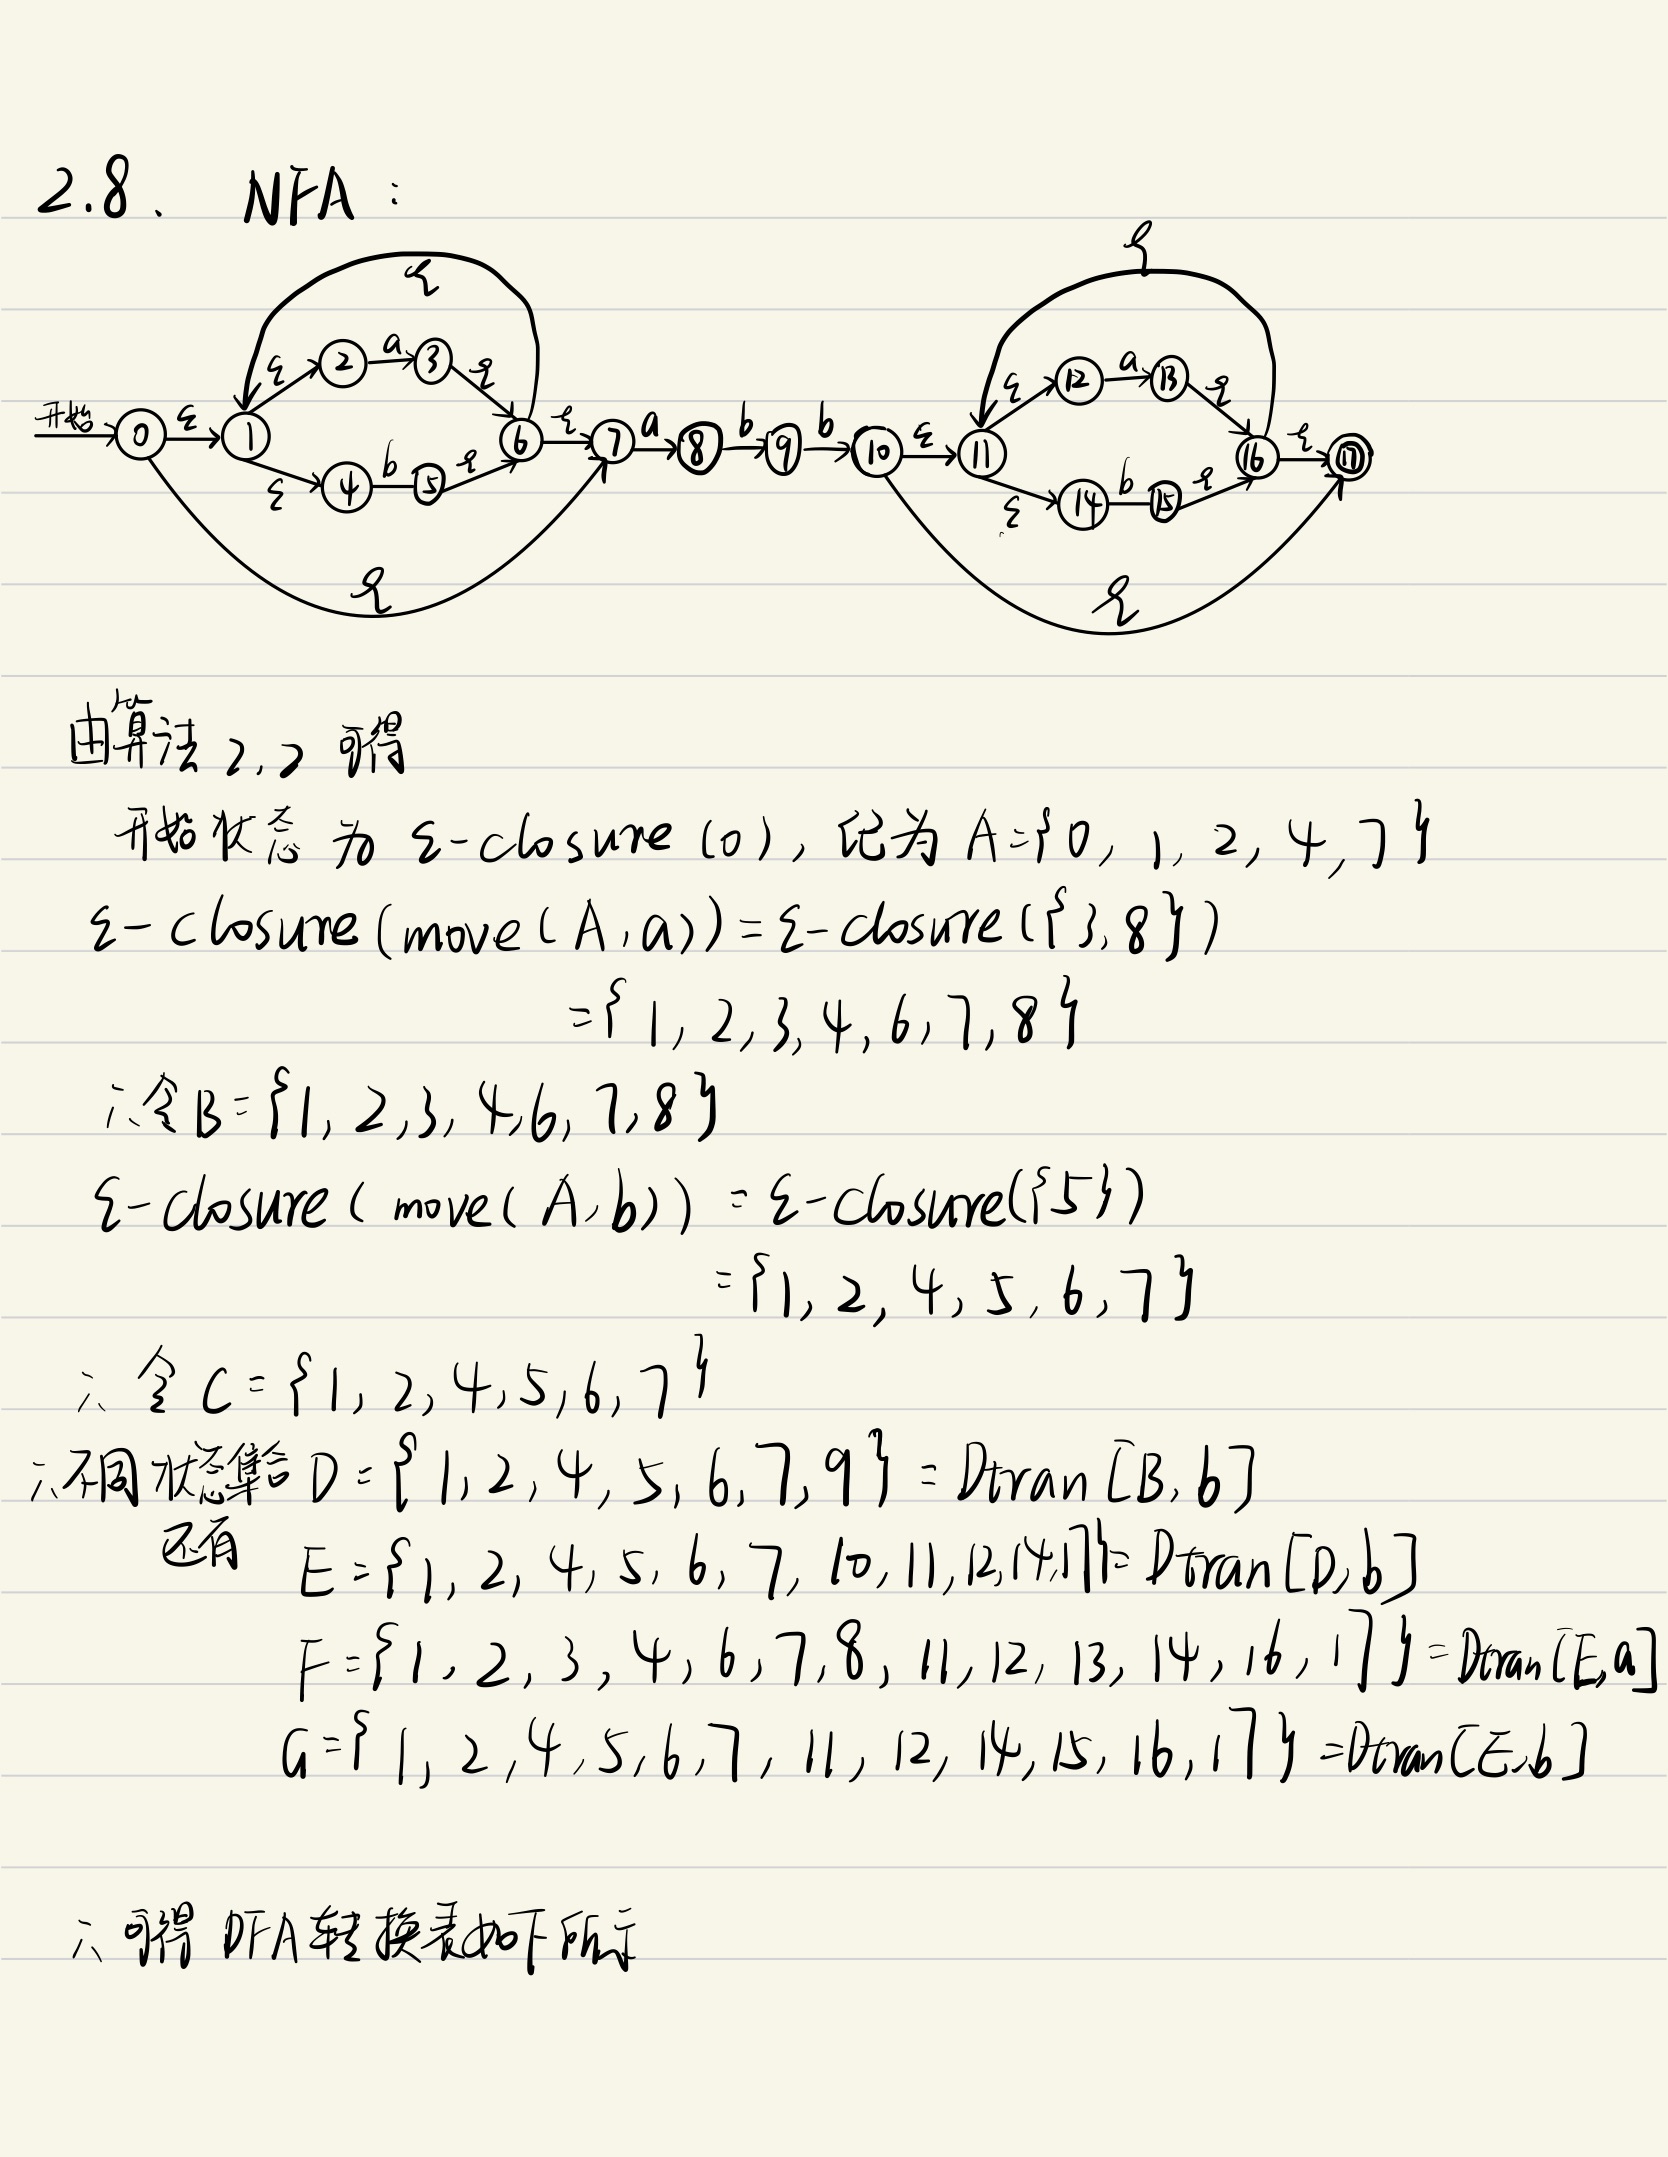 2.8. NFA:
ε ε
ε 2 a 3 ε ε 12 a 13 ε
开始 0 ε 1 6 ε 7 a 8 b 9 b 10 ε 11 16 ε 17
ε 4 b 5 ε ε 14 b 15 ε
ε ε
由算法 2.2 可得
开始状态为 ε-closure(0), 记为 A={0, 1, 2, 4, 7}
ε-closure(move(A,a))=ε-closure({3,8})
={1, 2, 3, 4, 6, 7, 8}
∴令B={1, 2, 3, 4, 6, 7, 8}
ε-closure(move(A,b)) = ε-closure({5})
={1, 2, 4, 5, 6, 7}
∴令 C={1, 2, 4, 5, 6, 7}
∴不同状态集合 D={1, 2, 4, 5, 6, 7, 9} = Dtran[B,b]
还有 E={1, 2, 4, 5, 6, 7, 10, 11, 12, 14, 17}=Dtran[D,b]
F={1, 2, 3, 4, 6, 7, 8, 11, 12, 13, 14, 16, 17}=Dtran[E,a]
G={1, 2, 4, 5, 6, 7, 11, 12, 14, 15, 16, 17}=Dtran[E,b]
∴可得 DFA转换表如下所示